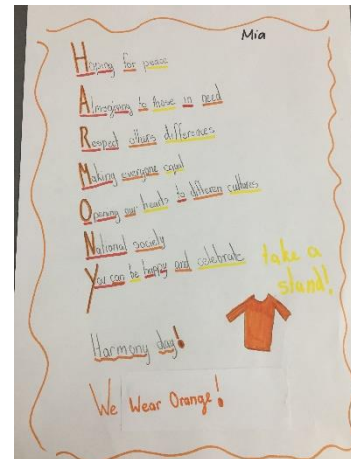 Mia
Hoping for peace
Almsgiving to those in need
Respect others differences
Making everyone equal
Opening our hearts to differen cultures
National society
You can be happy and celebrate
take a
stand!
Harmony day!
We Wear Orange!